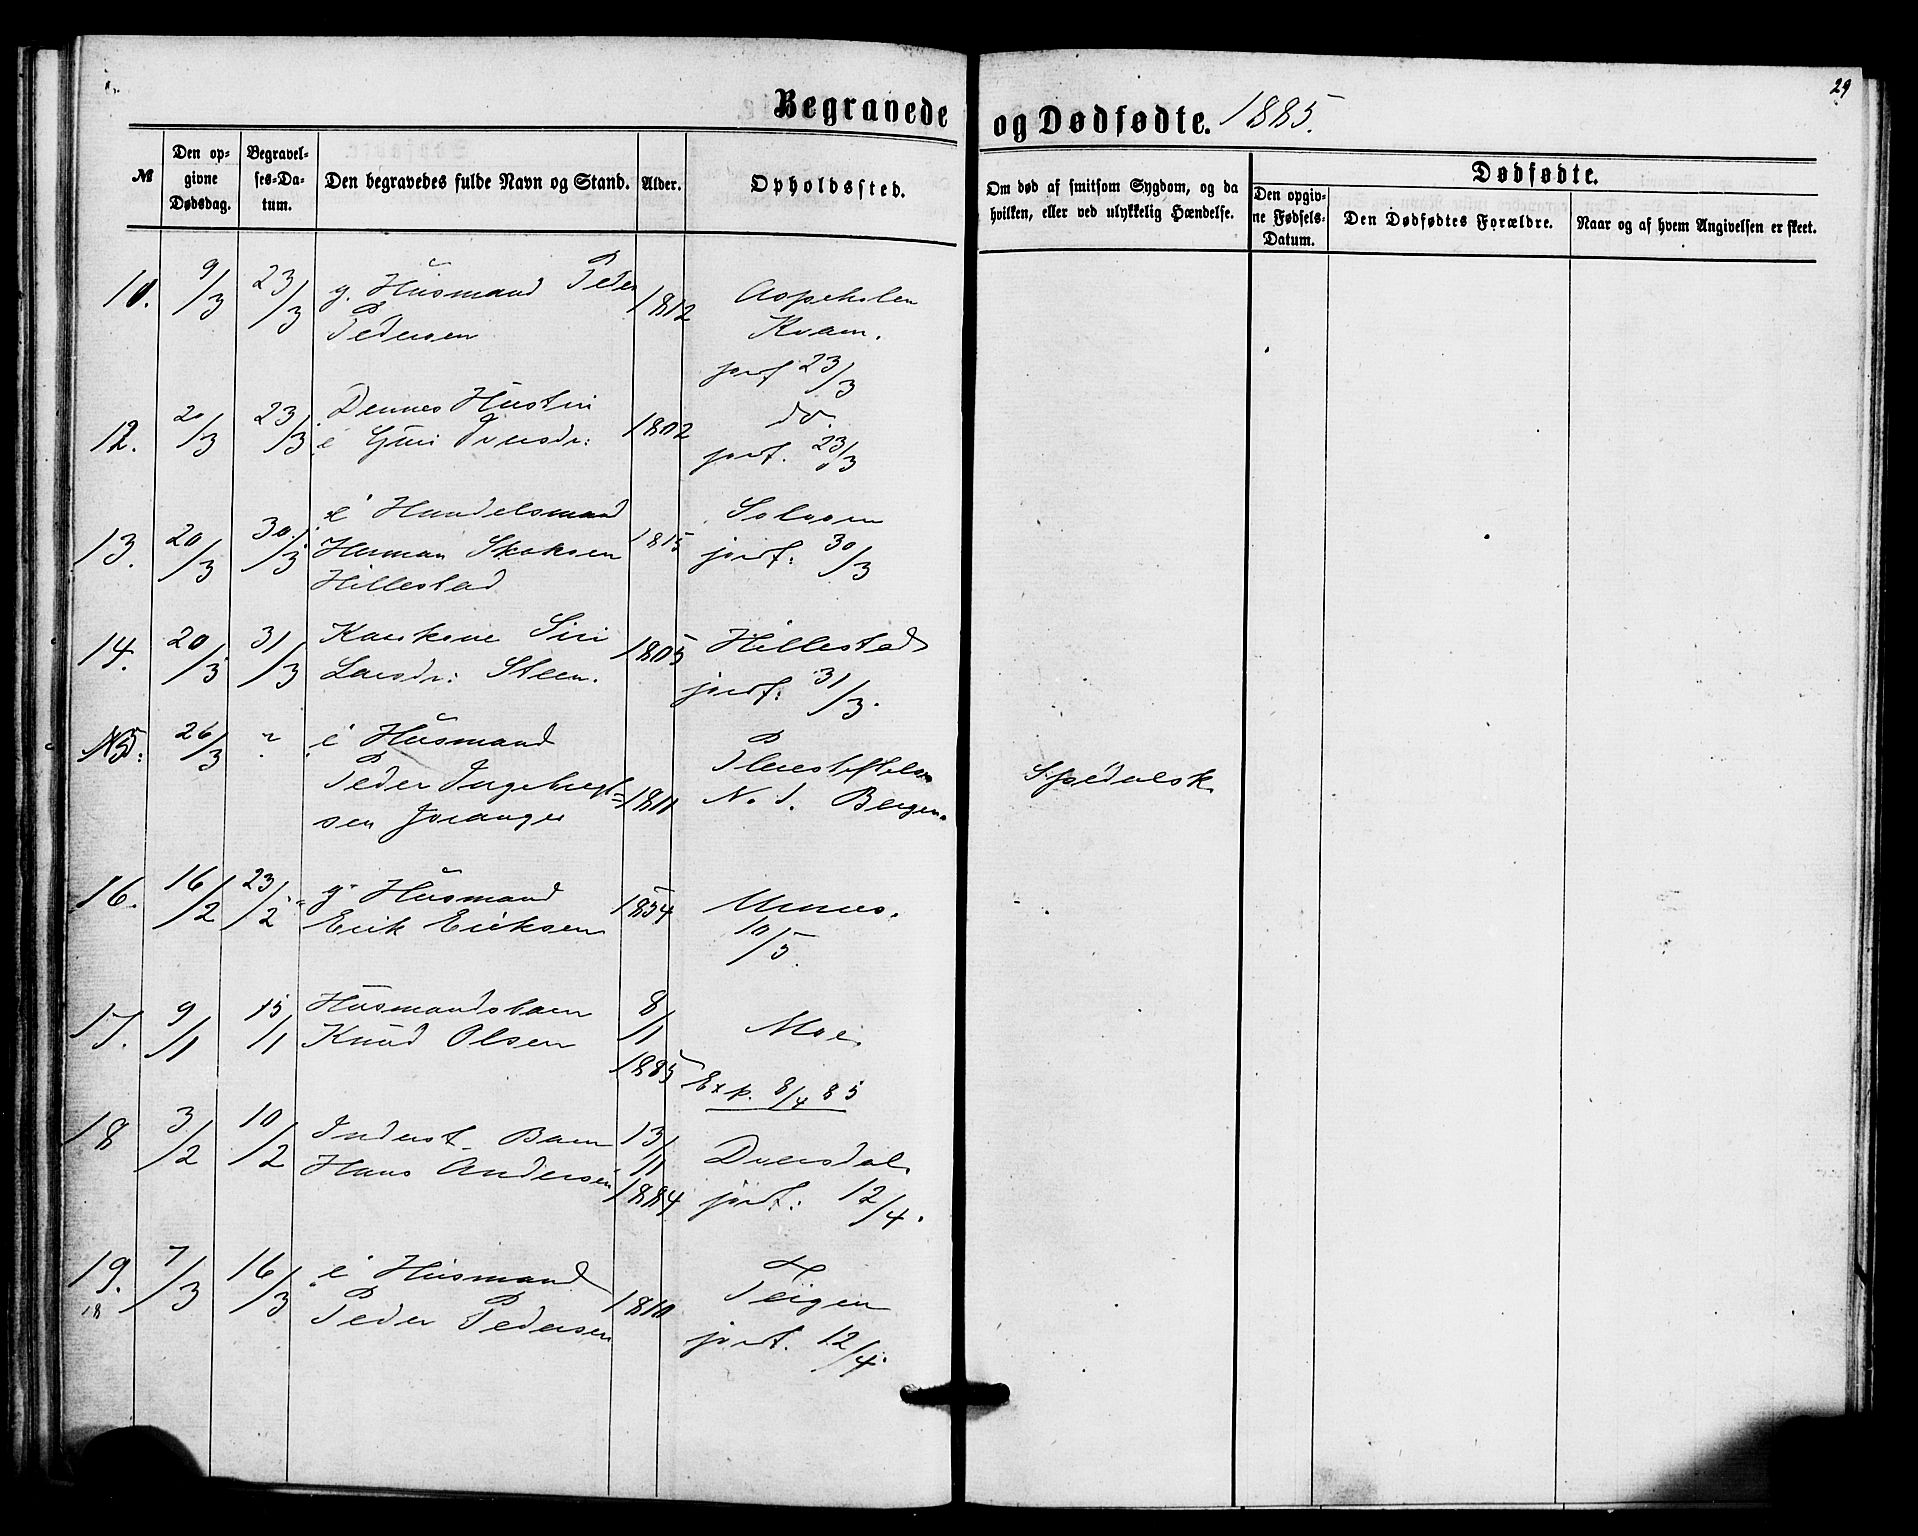 29
Begravede og Dødfødte. 1885.
№
Den op-
givne
Dødsdag.
Begravel-
ses-Da-
tum.
Den begravedes fulde Navn og Stand.
Alder.
Opholdssted.
Om død af smitsom Sygdom, og da
hvilken, eller ved ulykkelig Hændelse.
Dødfødte.
Den opgiv-
ne Fødsels-
Datum.
Den Dødfødtes Forældre.
Naar og af hvem Angivelsen er skeet.
9/3 23/3 g. Husmand Peder 1812
Pedersen Kvam.
jordf 23/3
12. 20/3 23/3 Dennes Hustru 1802 do.
e Guri Iversdr: jordf. 23/3
13. 20/3 30/3 e Handelsmand 1815 Solvorn
Herman jordf: 30/3
Hillestad
14. 20/3 31/3 Siri 1805 Hillestad
Larsdr: Steen. jordf: 31/3.
15. 26/3 " e Husmand Pleiestiftelsen
Peder Ingebregt= 1811 No 1. Bergen. Spedalsk.
sen Joranger
16. 16/2 23/2 g Husmand 1854 Urnes.
Erik Eriksen 10/5.
17. 9/1 15/1 Husmandsbarn 8/1 1885 Moe
Knud Olsen
Exp. 8/4 85
18 3/2 10/2 Inderst. Barn 13/11 1884
Hans Andersen jordf: 12/4.
19. 7/3 16/3 e Husmand 1810 Teigen
18
Peder Pedersen jordf. 12/4.